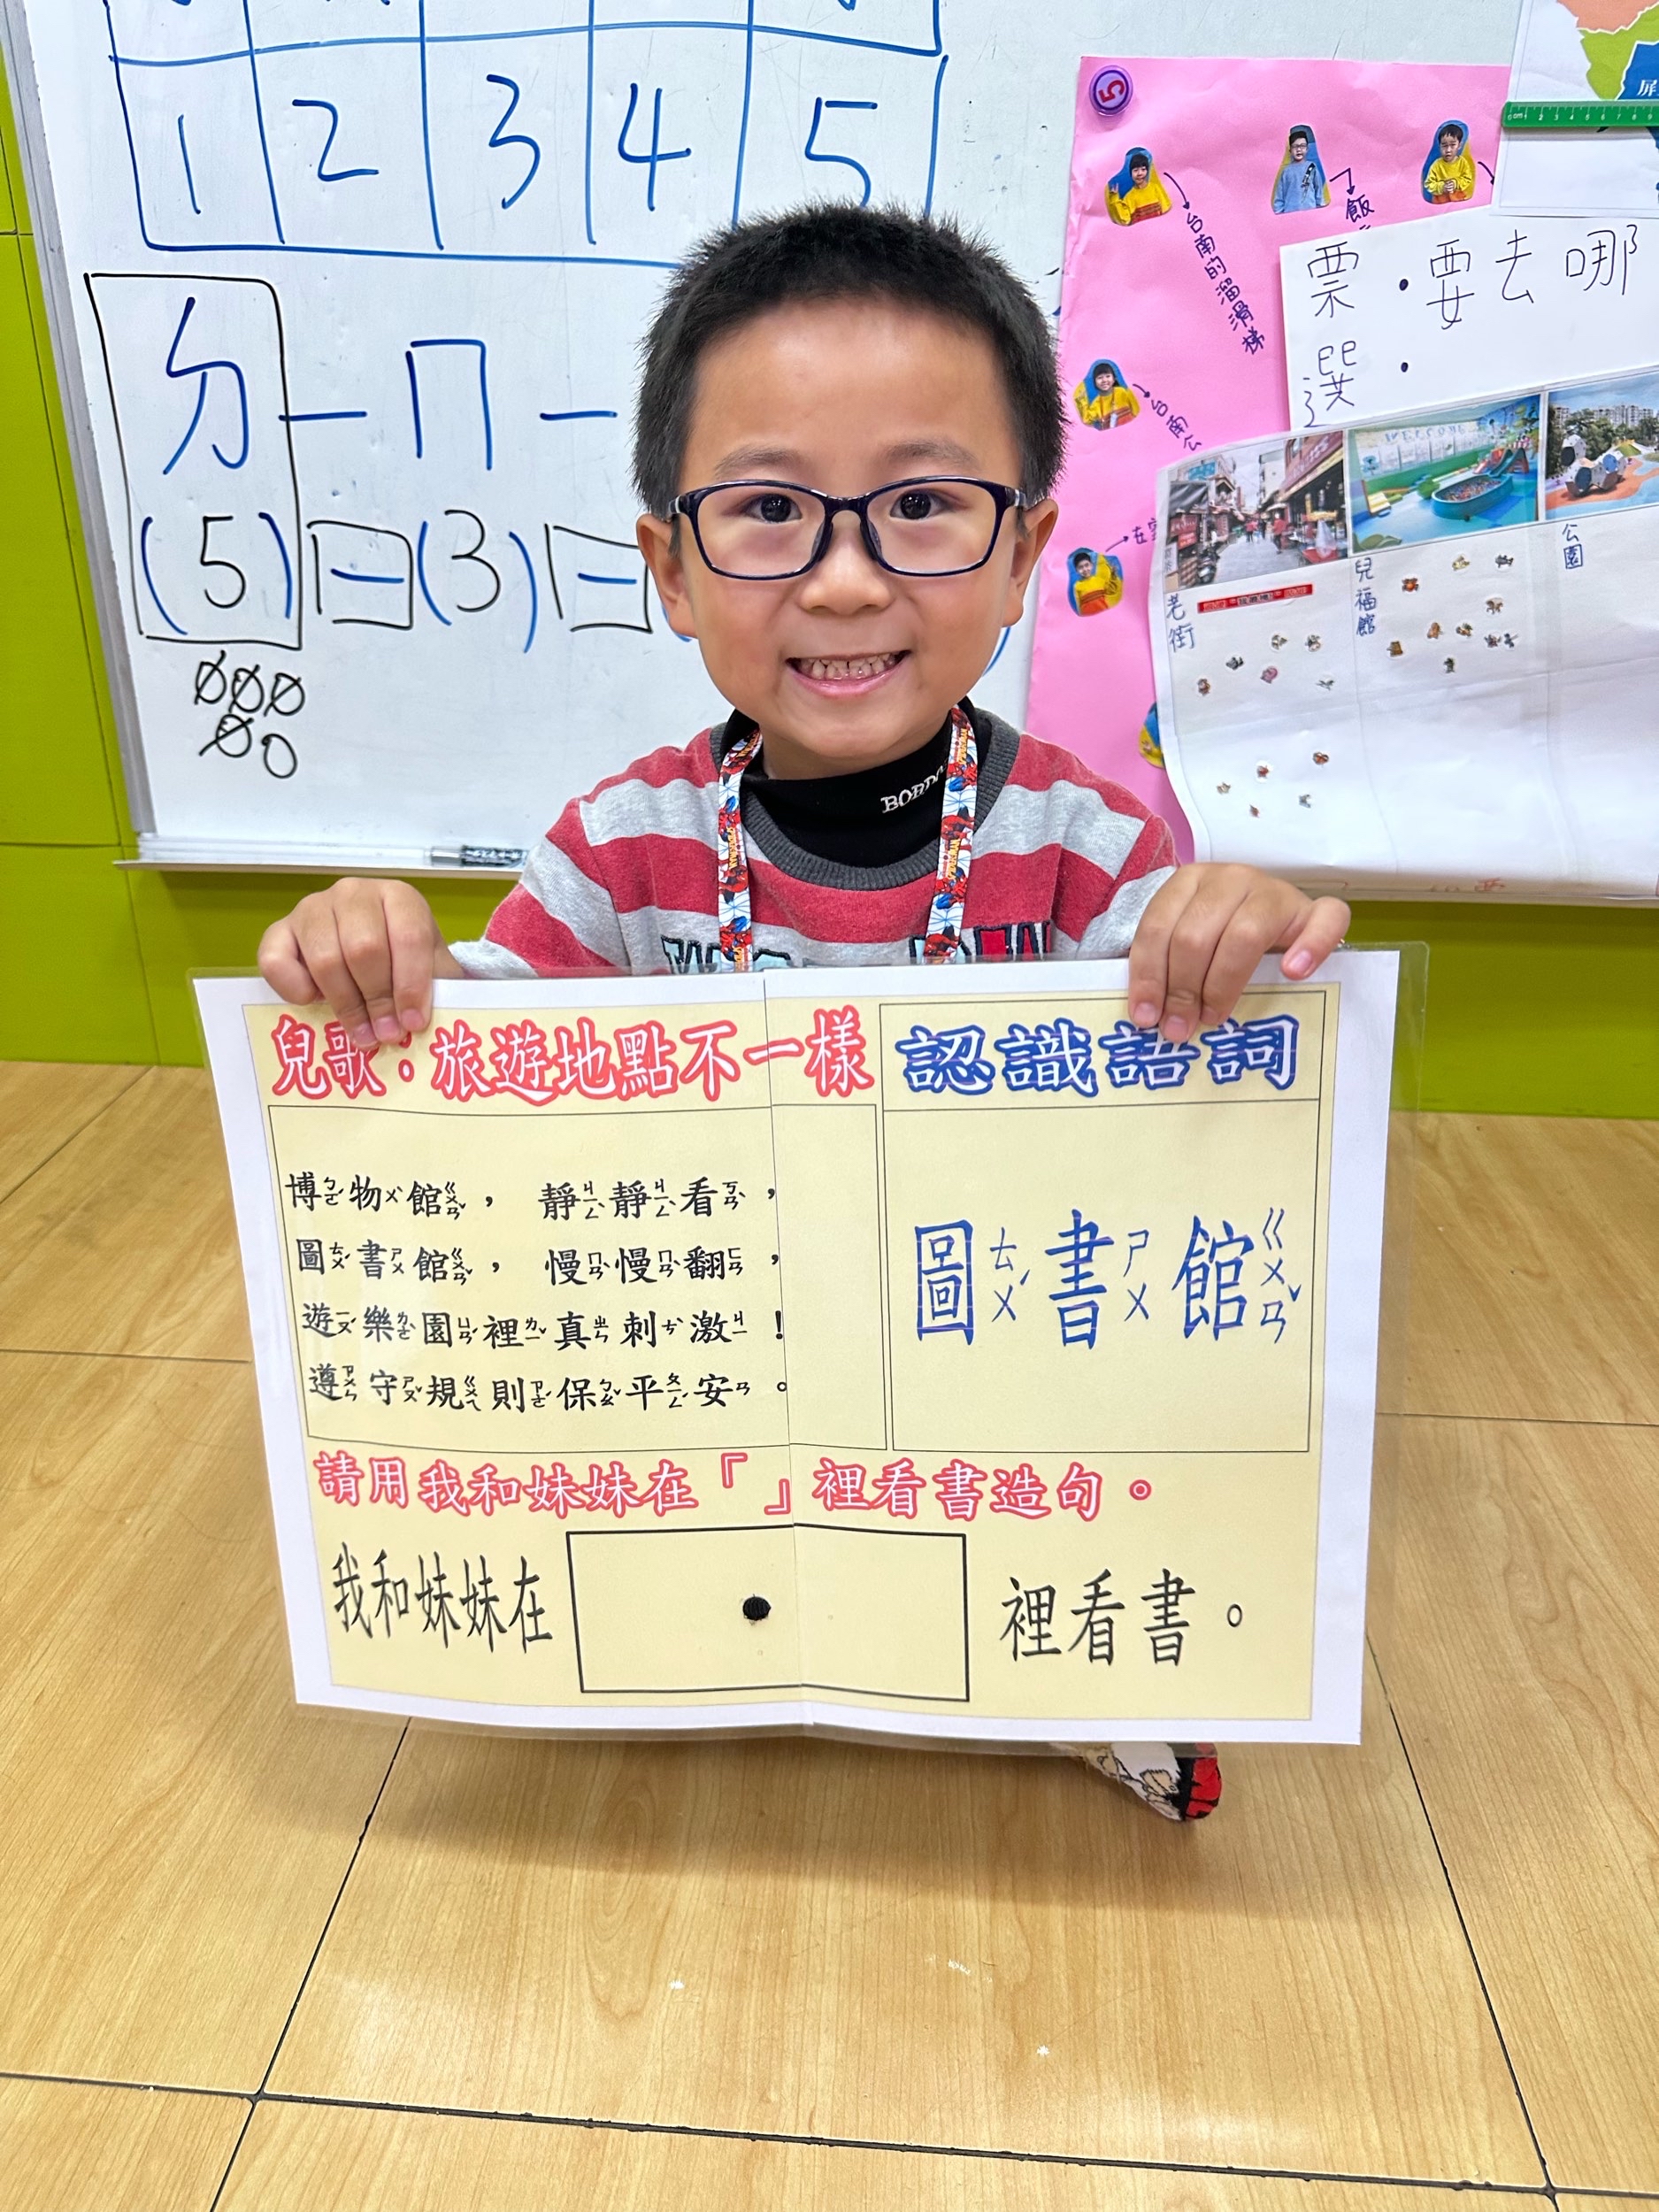 1 2 3 4 5
ㄉ － ㄇ －
(5) － (3) －
5
台南的溜滑梯
飯
台南公
票 · 要去哪
選 ·
老街
兒福館
公園
屏
BOBD
兒歌：旅遊地點不一樣
博ㄅㄛˊ物ㄨˋ館ㄍㄨㄢˇ， 靜ㄐㄧㄥˋ靜ㄐㄧㄥˋ看ㄎㄢˋ，
圖ㄊㄨˊ書ㄕㄨ館ㄍㄨㄢˇ， 慢ㄇㄢˋ慢ㄇㄢˋ翻ㄈㄢ，
遊ㄧㄡˊ樂ㄌㄜˋ園ㄩㄢˊ裡ㄌㄧˇ真ㄓㄣ刺ㄘˋ激ㄐㄧ！
遵ㄗㄨㄣ守ㄕㄡˇ規ㄍㄨㄟ則ㄗㄜˊ保ㄅㄠˇ平ㄆㄧㄥˊ安ㄢ。
認識語詞
圖ㄊㄨˊ書ㄕㄨ館ㄍㄨㄢˇ
請用我和妹妹在「 」裡看書造句。
我和妹妹在 裡看書。